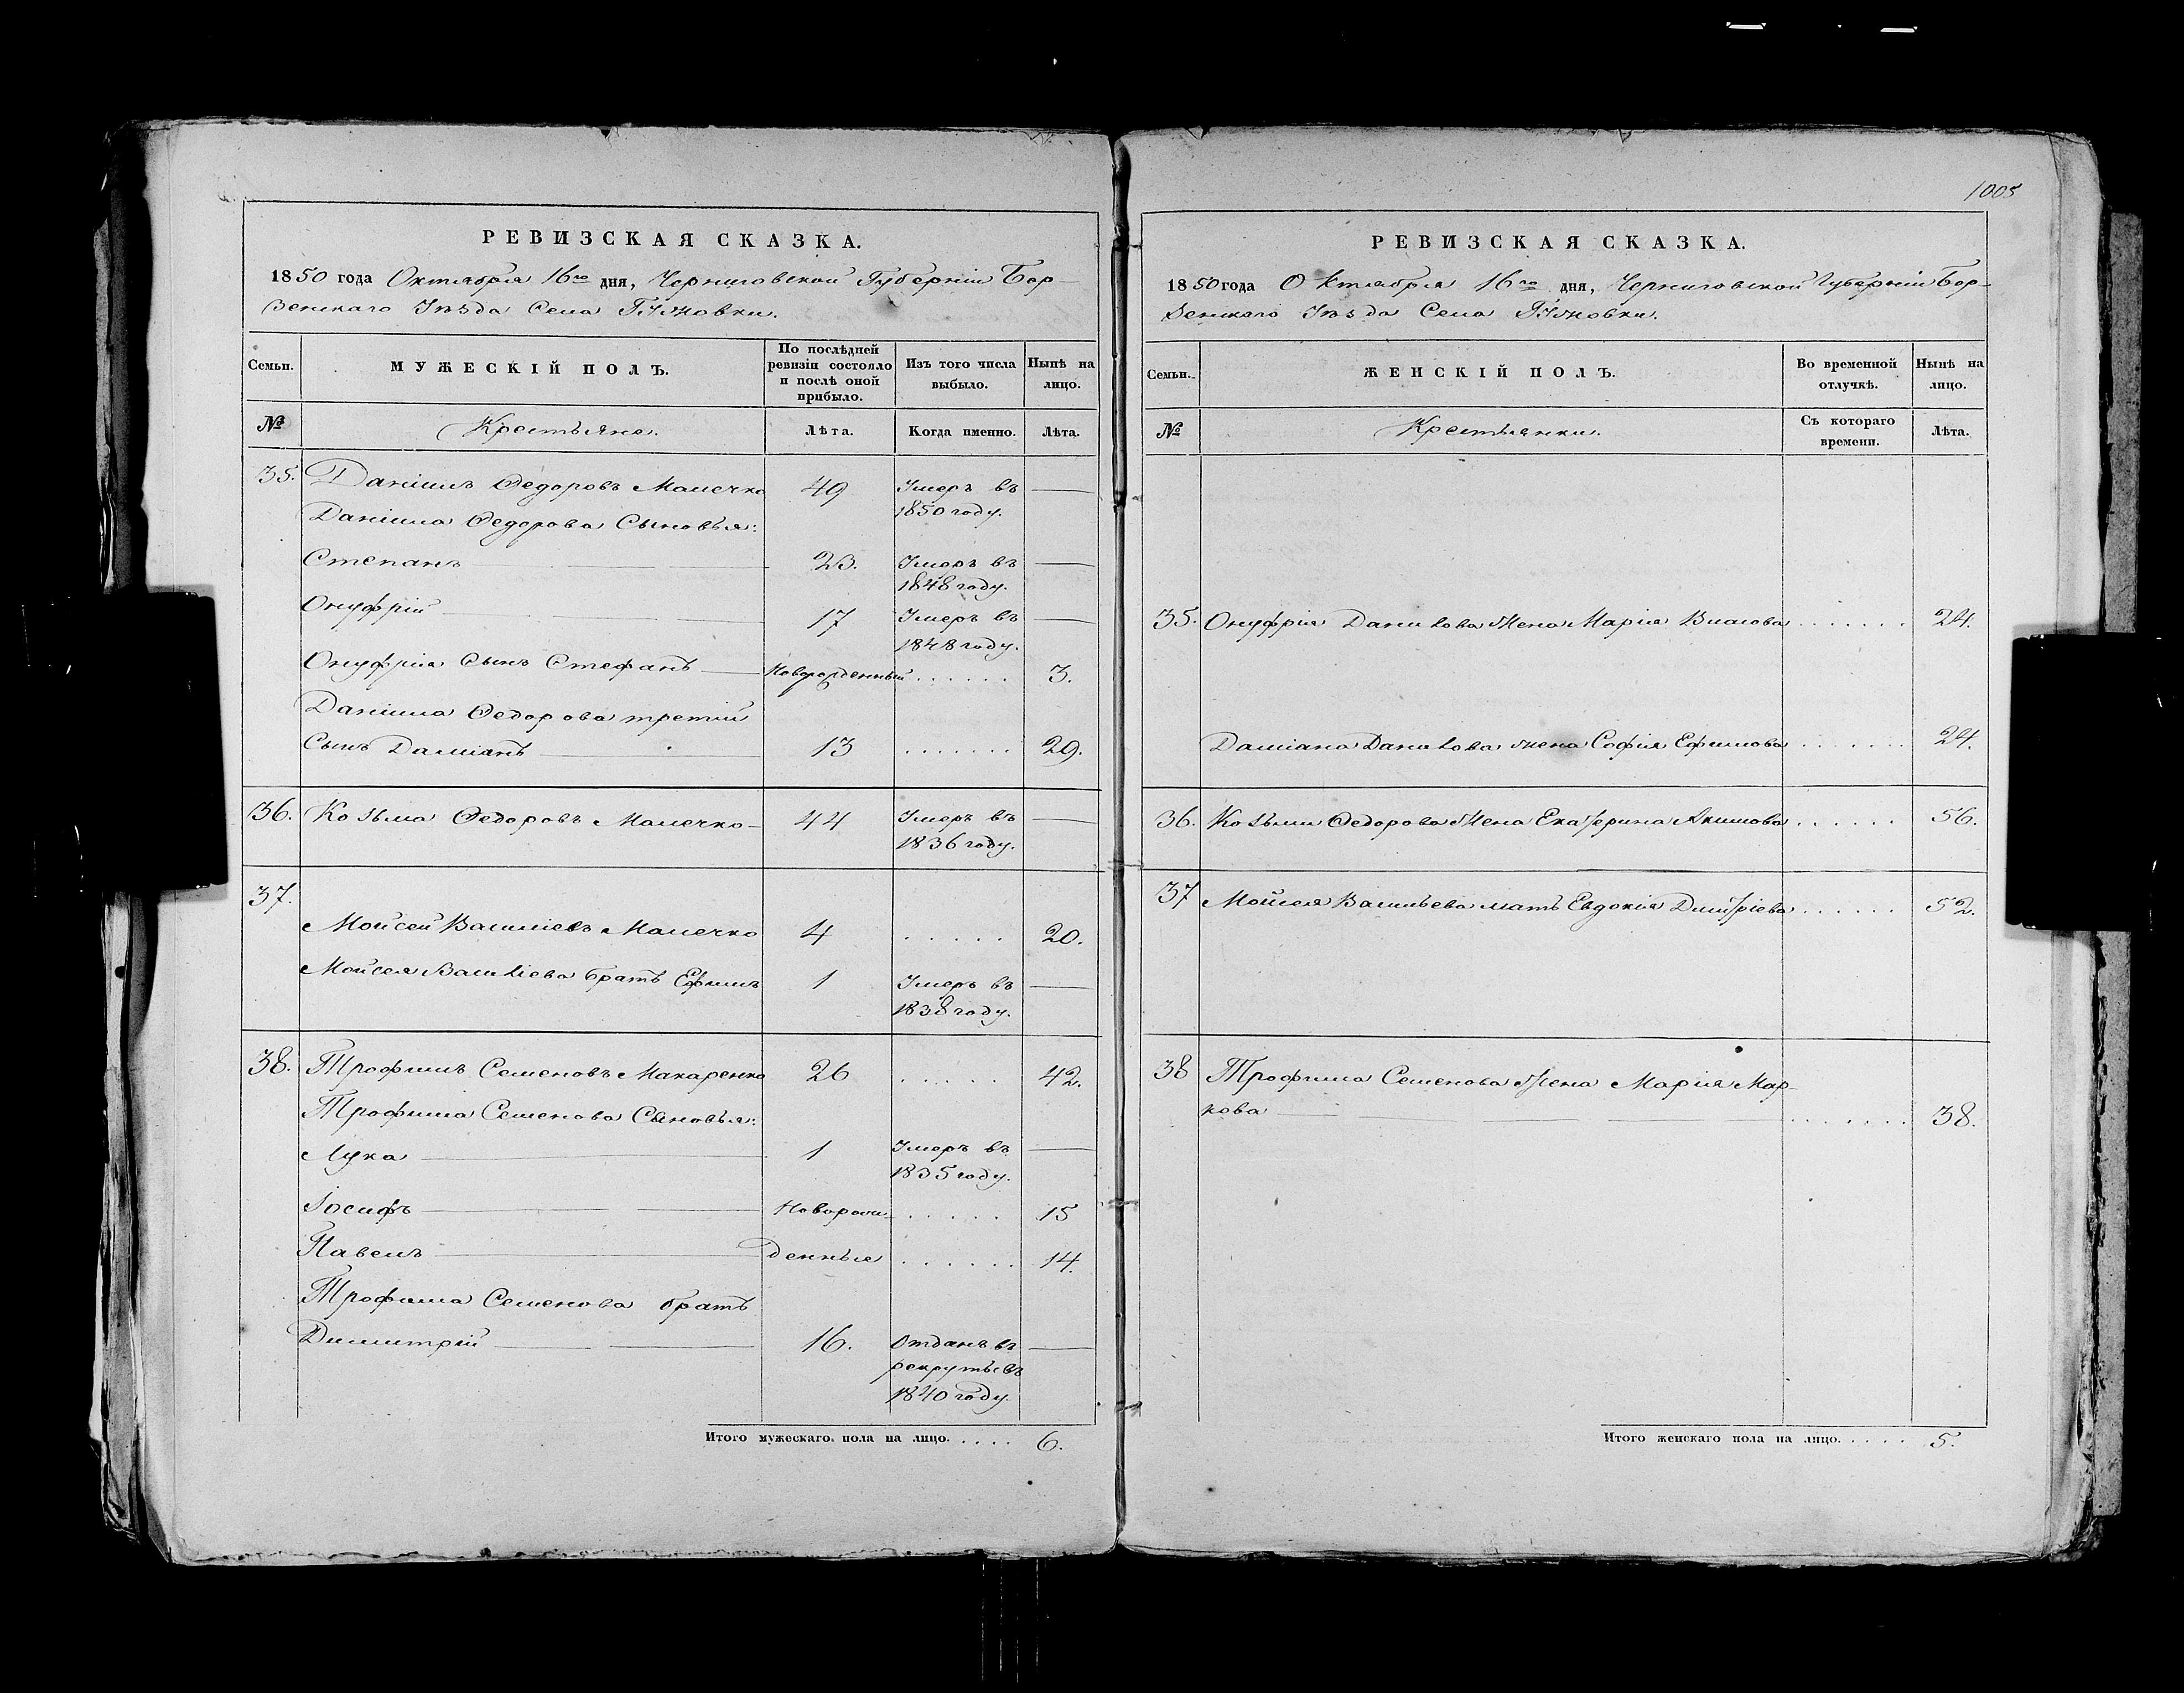 1005
РЕВИЗСКАЯ СКАЗКА.
1850 года Октября 16го дня, Черниговской Губерніи Бор-
зенскаго Уѣзда Села
Семьи.
МУЖЕСКІЙ ПОЛЪ.
По послѣдней
ревизіи состояло
и послѣ оной
прибыло.
Изъ того числа
выбыло.
Нынѣ на
лицо.
№
Крестьяне.
Лѣта.
Когда именно.
Лѣта.
35. Даніилъ Ѳедоровъ 49 Умеръ въ —
1850 году.
Даніила Ѳедорова Сыновья:
Степанъ — 23. Умеръ въ —
1848 году.
Онуфрій — 17 Умеръ въ —
1848 году.
Онуфрія Сынъ Стефанъ — Новорожденный ...... 3.
Даніила Ѳедорова третій
Сынъ Даміанъ — 13 ....... 29.
36. Козьма Ѳедоровъ 44 Умеръ въ —
1836 году.
37.
Мойсей Василіевъ 4 ..... 20.
Мойсея Василіева братъ Ефимъ 1 Умеръ въ —
1838 году.
38. Трофимъ Семеновъ Макаренко 26 ..... 42.
Трофима Семенова Сыновья:
Лука — 1 Умеръ въ —
1835 году.
Іосифъ — Новорож- ..... 15
Павелъ — денные ...... 14.
Трофима Семенова братъ
Димитрій — 16. Отданъ въ —
рекруты въ
1840 году
Итого мужескаго пола на лицо. .... 6.
РЕВИЗСКАЯ СКАЗКА.
1850 года Октября 16го дня, Черниговской Губерніи Бор-
зенскаго Уѣзда Села
Семьи.
ЖЕНСКІЙ ПОЛЪ.
Во временной
отлучкѣ.
Нынѣ на
лицо.
№
Крестьянки.
Съ котораго
времени.
Лѣта.
35. Онуфрія Данилова Жена Марія Власова ....... 24.
Даміана Данилова жена Софія Ефимова ....... 24.
36. Козьмы Ѳедорова Жена Екатерина Акимова ...... 56.
37 Мойсея Васильева мать Евдокія Дмитріева ...... 52.
38 Трофима Семенова Жена Марія Мар-
кова — ....... 38.
Итого женскаго пола на лицо. .... 5.